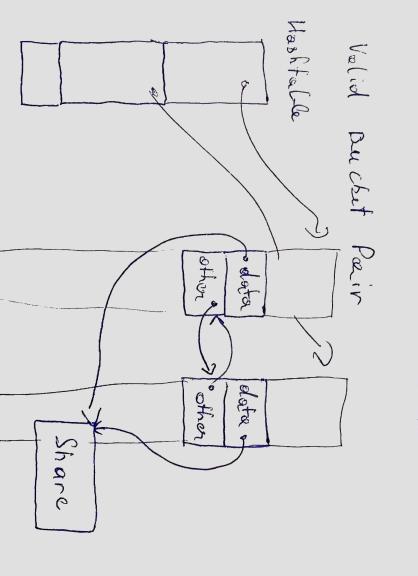 Valid Bucket Pair
Hashtable
data
other
data
other
Share